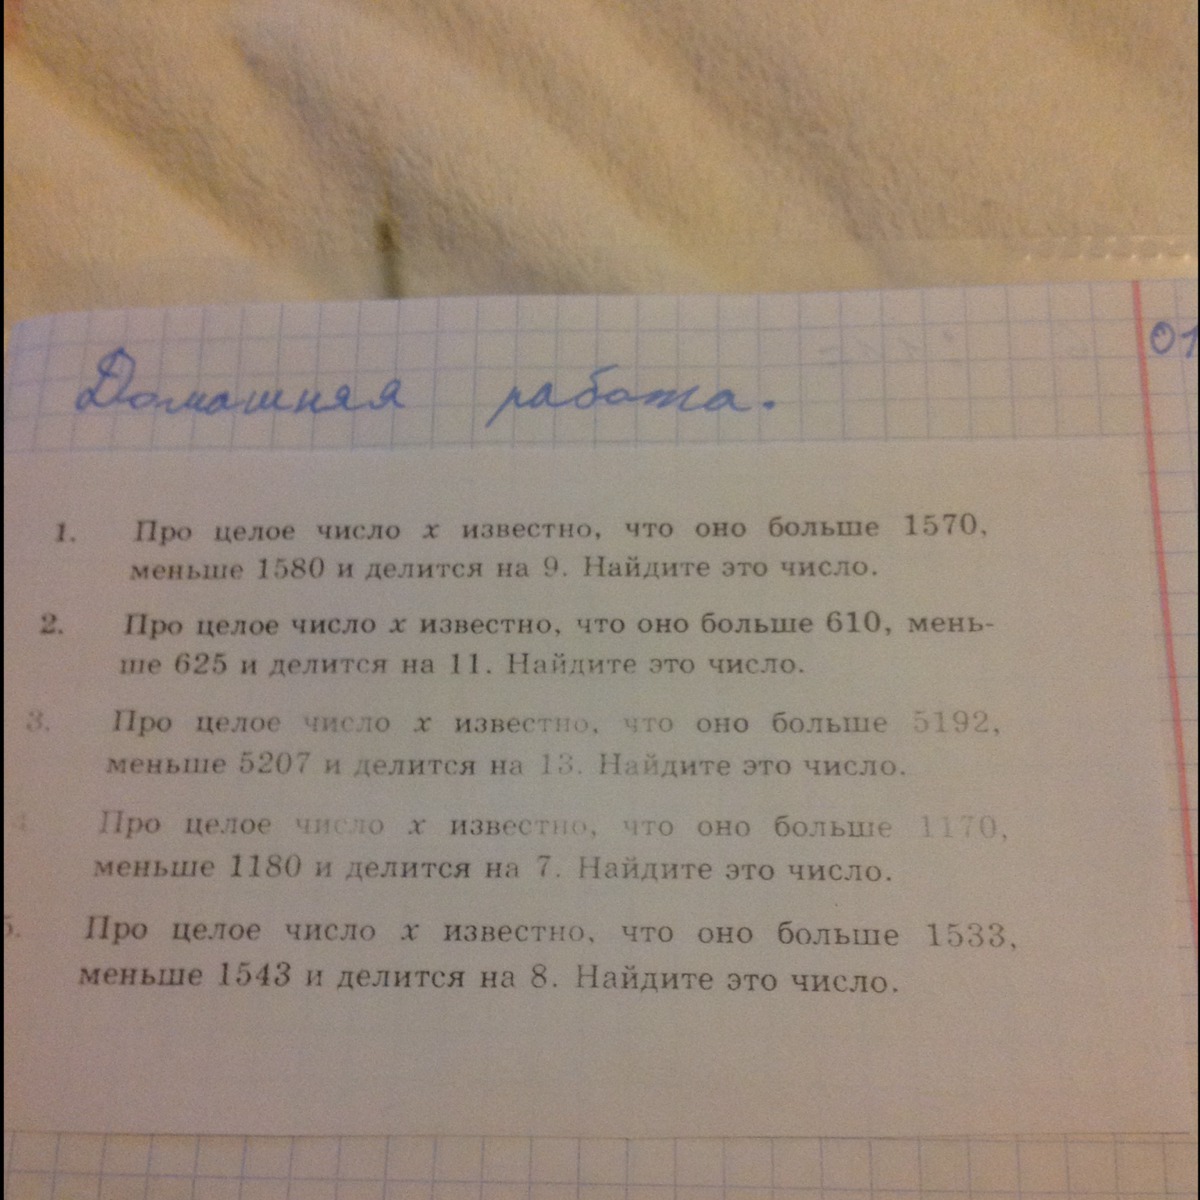 01
Домашняя работа.
1. Про целое число x известно, что оно больше 1570,
меньше 1580 и делится на 9. Найдите это число.
2. Про целое число x известно, что оно больше 610, мень-
ше 625 и делится на 11. Найдите это число.
3. Про целое число x известно, что оно больше 5192,
меньше 5207 и делится на 13. Найдите это число.
4. Про целое число x известно, что оно больше 1170,
меньше 1180 и делится на 7. Найдите это число.
5. Про целое число x известно, что оно больше 1533,
меньше 1543 и делится на 8. Найдите это число.